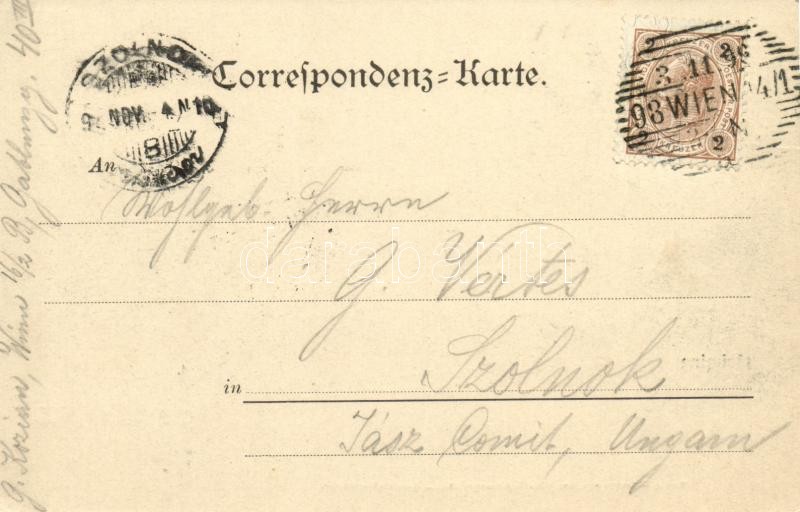 Correspondenz=Karte.
SZOLNOK
NOV. 4 N 10
B
2 2
3 11 98
93 WIEN 4/1
2 KREUZER 2
An
Wohlgeb. Herrn
G. Vértes
darabanth
in Szolnok
Jász Comit, Ungarn
G. Kozian, Wien 16/2 R. Gablenzg. 40 III